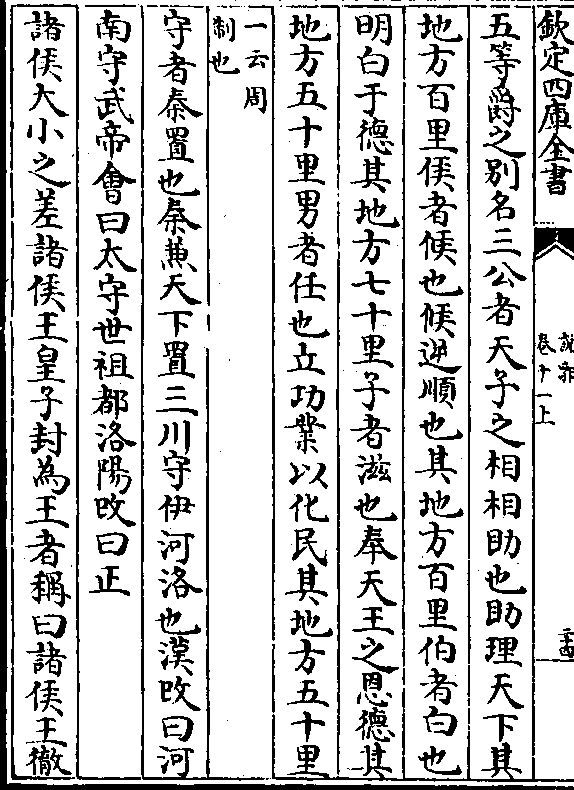 欽定四庫全書
說郛
卷五十一上
二十四
五等爵之别名三公者天子之相相助也助理天下其
地方百里侯者候也候逆順也其地方百里伯者白也
明白于德其地方七十里子者滋也奉天王之恩德其
地方五十里男者任也立功業以化民其地方五十里
一云周
制也
守者秦置也秦兼天下置三川守伊河洛也漢改曰河
南守武帝會曰太守世祖都洛陽改曰正
諸侯大小之差諸侯王皇子封為王者稱曰諸侯王徹